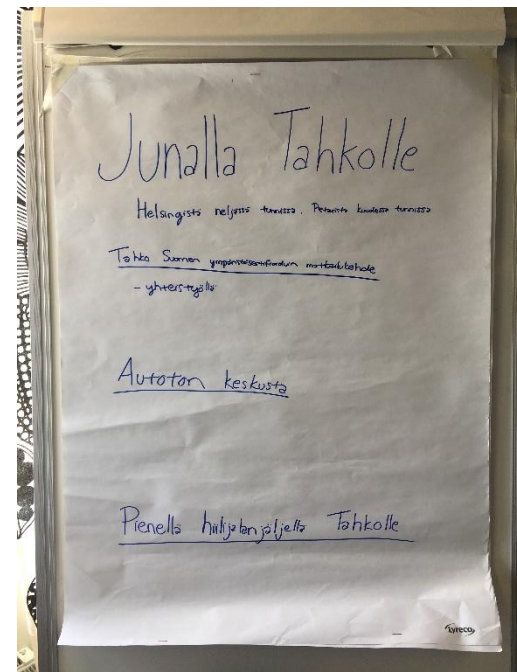 Junalla Tahkolle
Helsingistä neljässä tunnissa. Pietarista kuudessa tunnissa
Tahko Suomen ympäristösertifioiduin matkailukohde
- yhteistyöllä
Autoton keskusta
Pienellä hiilijalanjäljellä Tahkolle
Tyreco